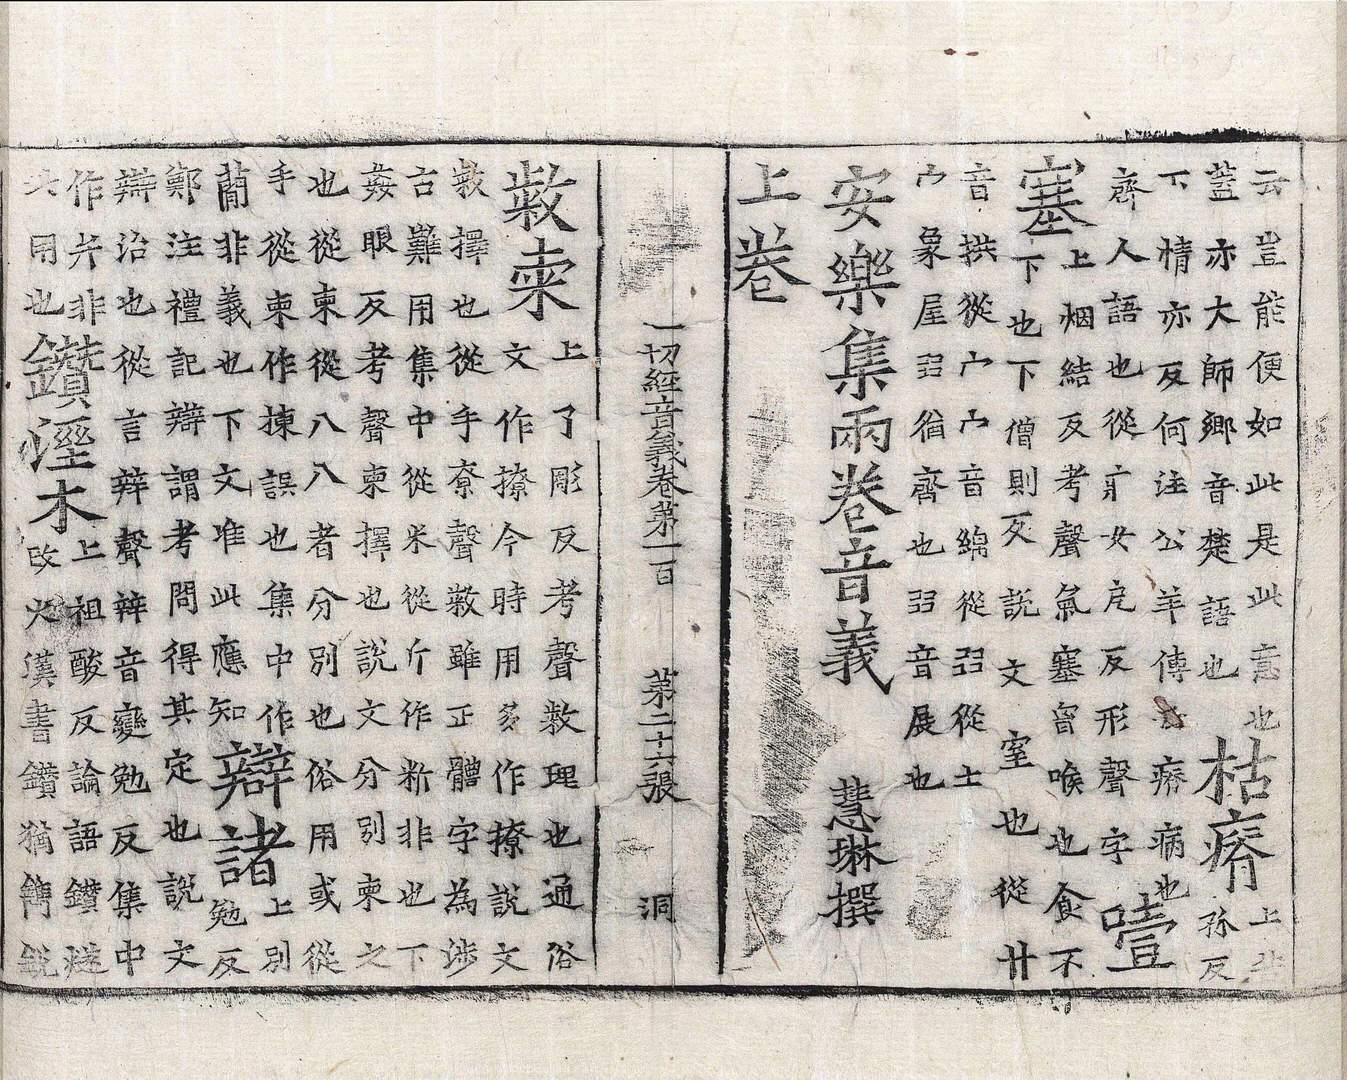 云豈能便如此是此意也枯瘠上
蓋亦大師鄉音楚語也孫反
下情亦反何注公羊傳云瘠病也噎
齊人語也從疒女戹反形聲字
上烟結反考聲氣塞窅喉也食不
塞下也下僧則反說文窒也從廾
音拱從宀宀音綿從㠭從土
宀𧰼屋㠭㣇齊也㠭音展也
安樂集兩卷音義 慧琳撰
上卷
一切經音義卷第一百 第二十六張 洞
敹柬上了彫反考聲敹理也通俗
文作撩今時用多作撩說文
敹擇也從手尞聲敹雖正體字為涉
古難用集中從米從斤作䉼非也下
姦眼反考聲柬擇也說文分別柬之
也從束從八八者分別也俗用或從
手從柬作揀誤也集中作
蕳非義也下文准此應知辯諸勉反
上別
鄭注禮記辯謂考問得其定也說文
辯治也從言辡聲辡音變勉反集中
作𠦬非也鑽𤀹木上祖酸反論語鑽燧
用也改火漢書鑽猶鐫銳